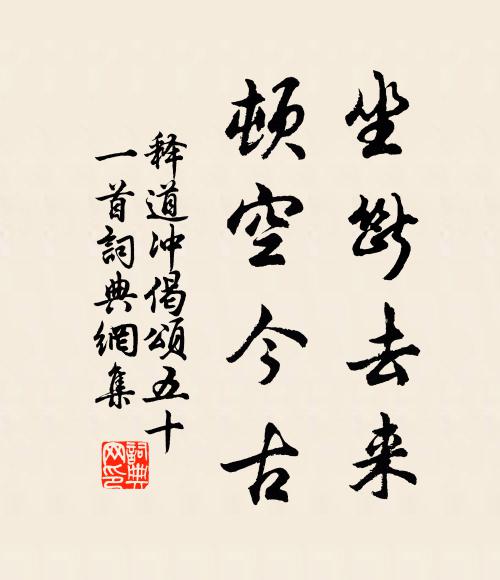 坐斷去来
頓空今古
释道冲偈頌五十
一首詞典網集
詞典網印